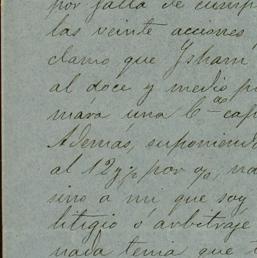 por falta de cump
las veinte acciones
clamo que Isham
al doce y medio p
mara una C
Además, suponiend
al 12½ por %, na
sino a mi que soy
litigio ó arbitraje
nada tenia que t